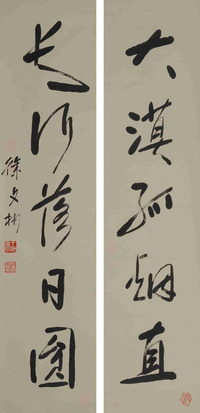 大漠孤烟直
长河落日圆
徐文彬